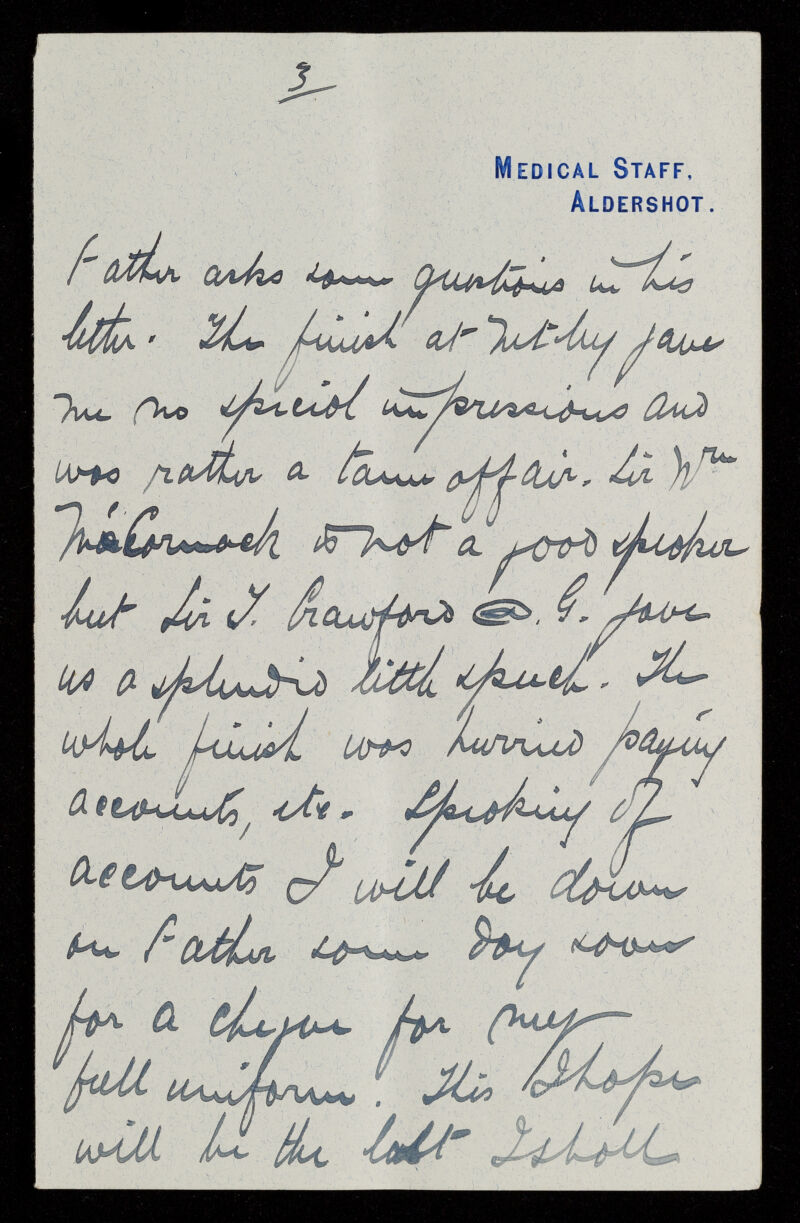 3
MEDICAL STAFF,
ALDERSHOT.
Father asks some questions in his
letter. The finish at Netley gave
me no special impressions and
was rather a tame affair. Sir Wm
McCormack is not a good speaker
but Sir T. Crawford D. G. gave
us a splendid little speech. The
whole finish was hurried paying
accounts, etc. Speaking of
accounts I will be down
on Father some day soon
for a cheque for my
full uniform. This I hope
will be the last I shall